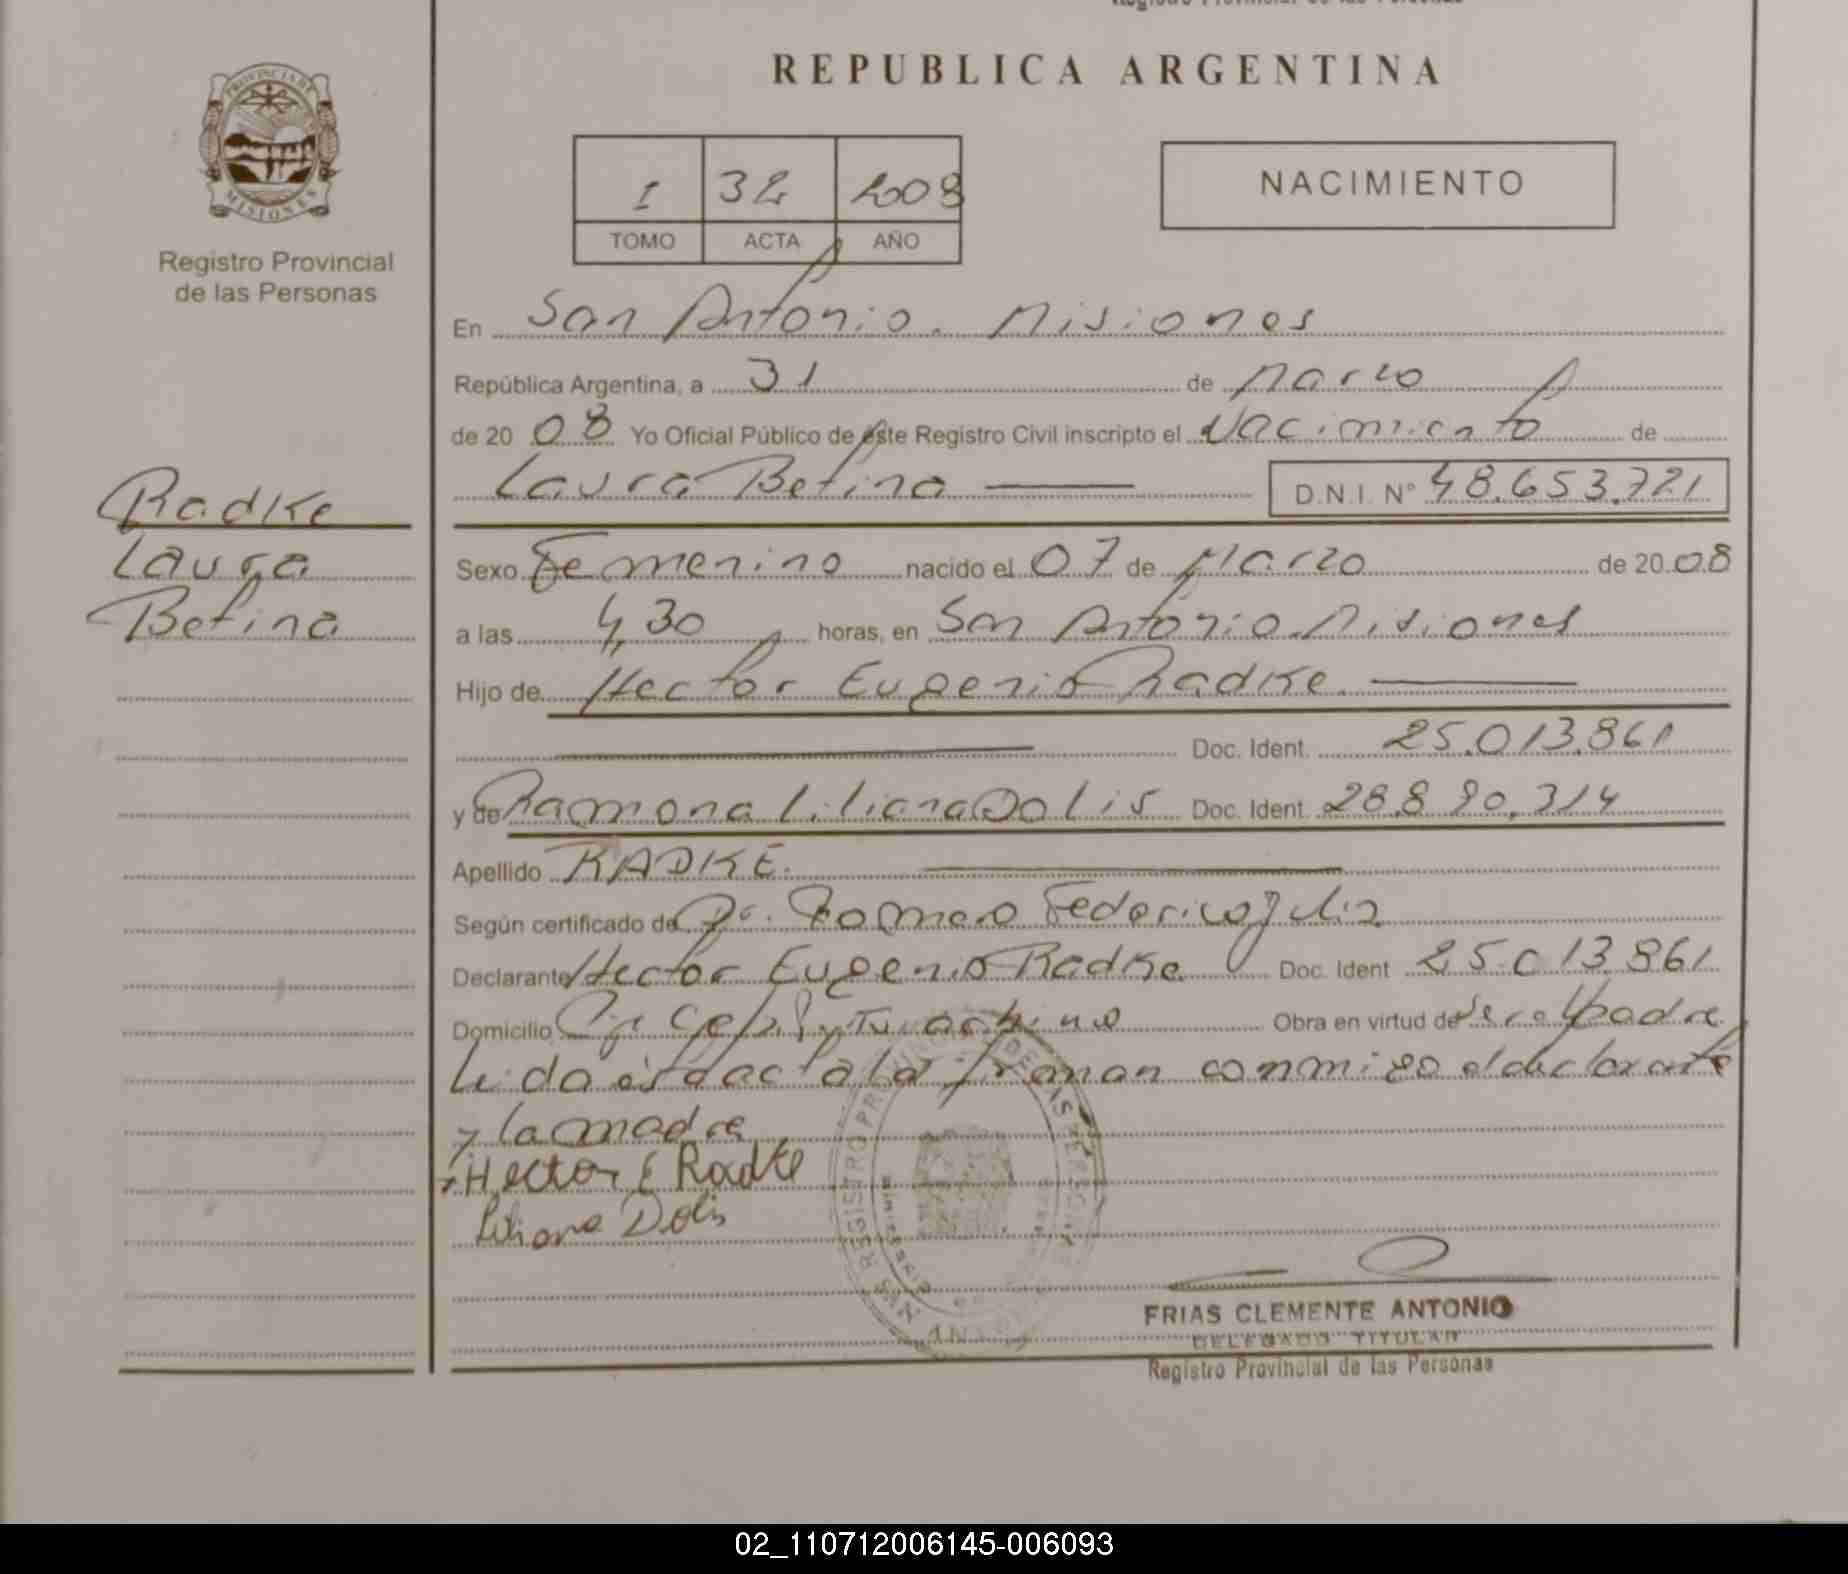 REPUBLICA ARGENTINA
PROVINCIA DE
MISIONES
Registro Provincial
de las Personas
I 32 2008
TOMO ACTA AÑO
NACIMIENTO
En San Antonio. Misiones
República Argentina, a 31 de Marzo
de 20 08 Yo Oficial Público de este Registro Civil inscripto el Nacimiento de
Laura Betina D.N.I. Nº 48.653.721
Radke
Laura
Betina
Sexo Femenino nacido el 07 de Marzo de 20 08
a las 4,30 horas, en San Antonio. Misiones
Hijo de Hector Eugenio Radke.
Doc. Ident. 25.013.861
y de Ramona Liliana Dolis Doc. Ident. 28.890.314
Apellido RADKE.
Según certificado de Dr. Romero Federico
Declarante Hector Eugenio Radke Doc. Ident 25.013.861
Domicilio Obra en virtud de ser el padre
Leida el acta la firman conmigo el declarante
y la madre
Hector E Radke
Liliana Dolis
FRIAS CLEMENTE ANTONIO
DELEGADO TITULAR
Registro Provincial de las Personas
02_110712006145-006093